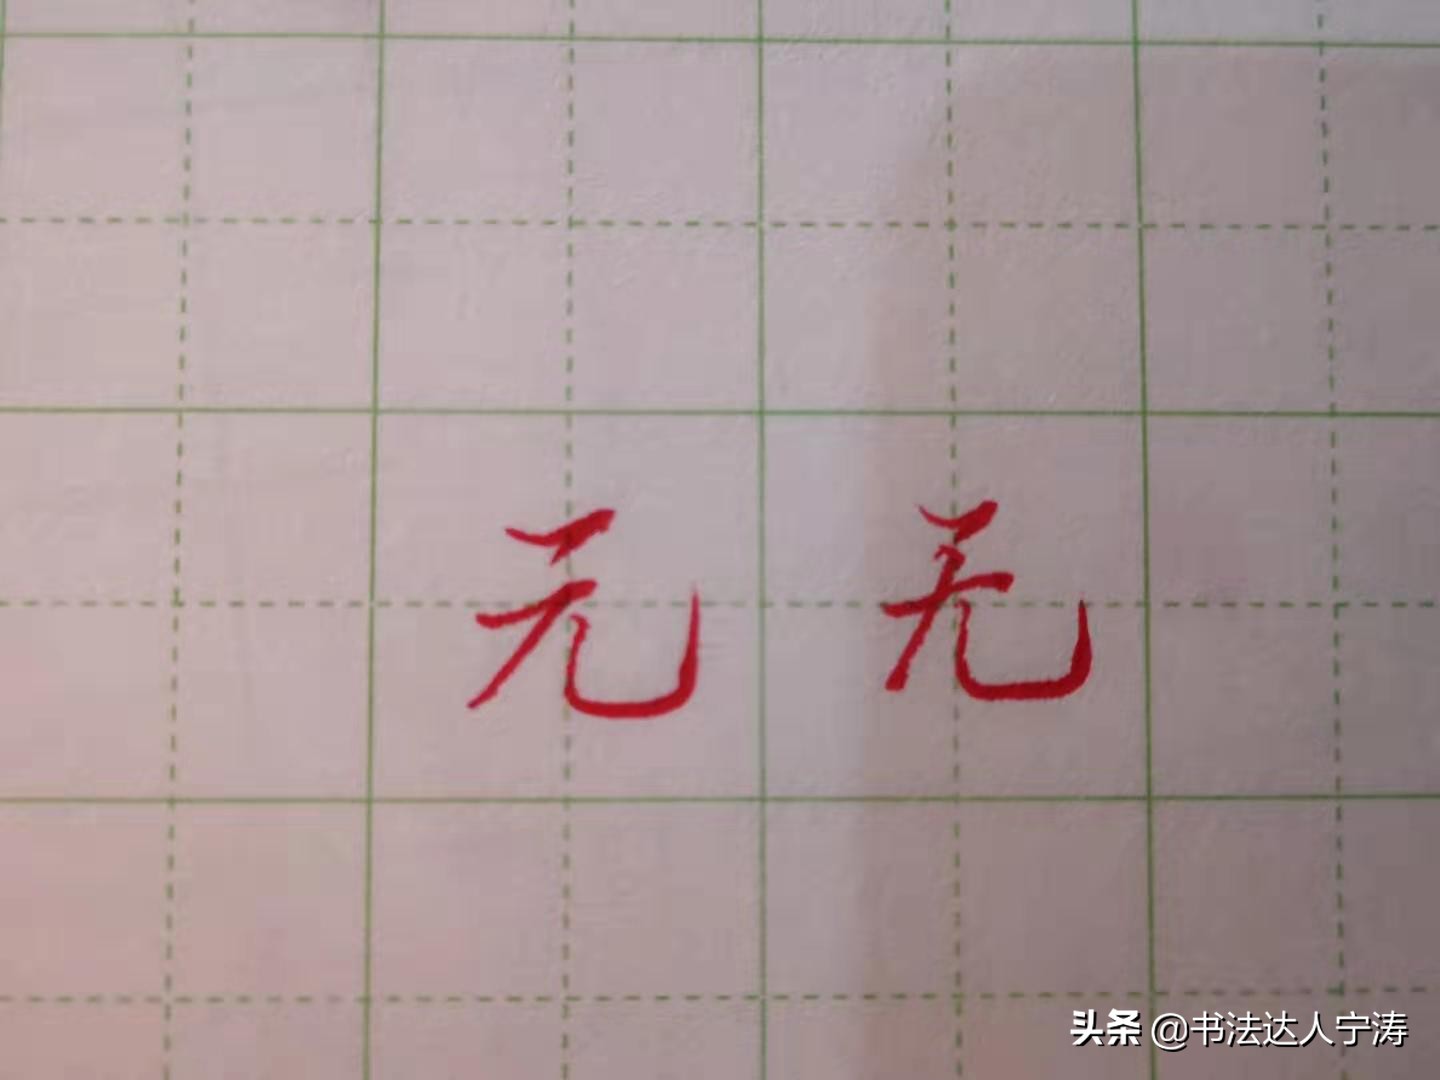 元 无
头条 @书法达人宁涛